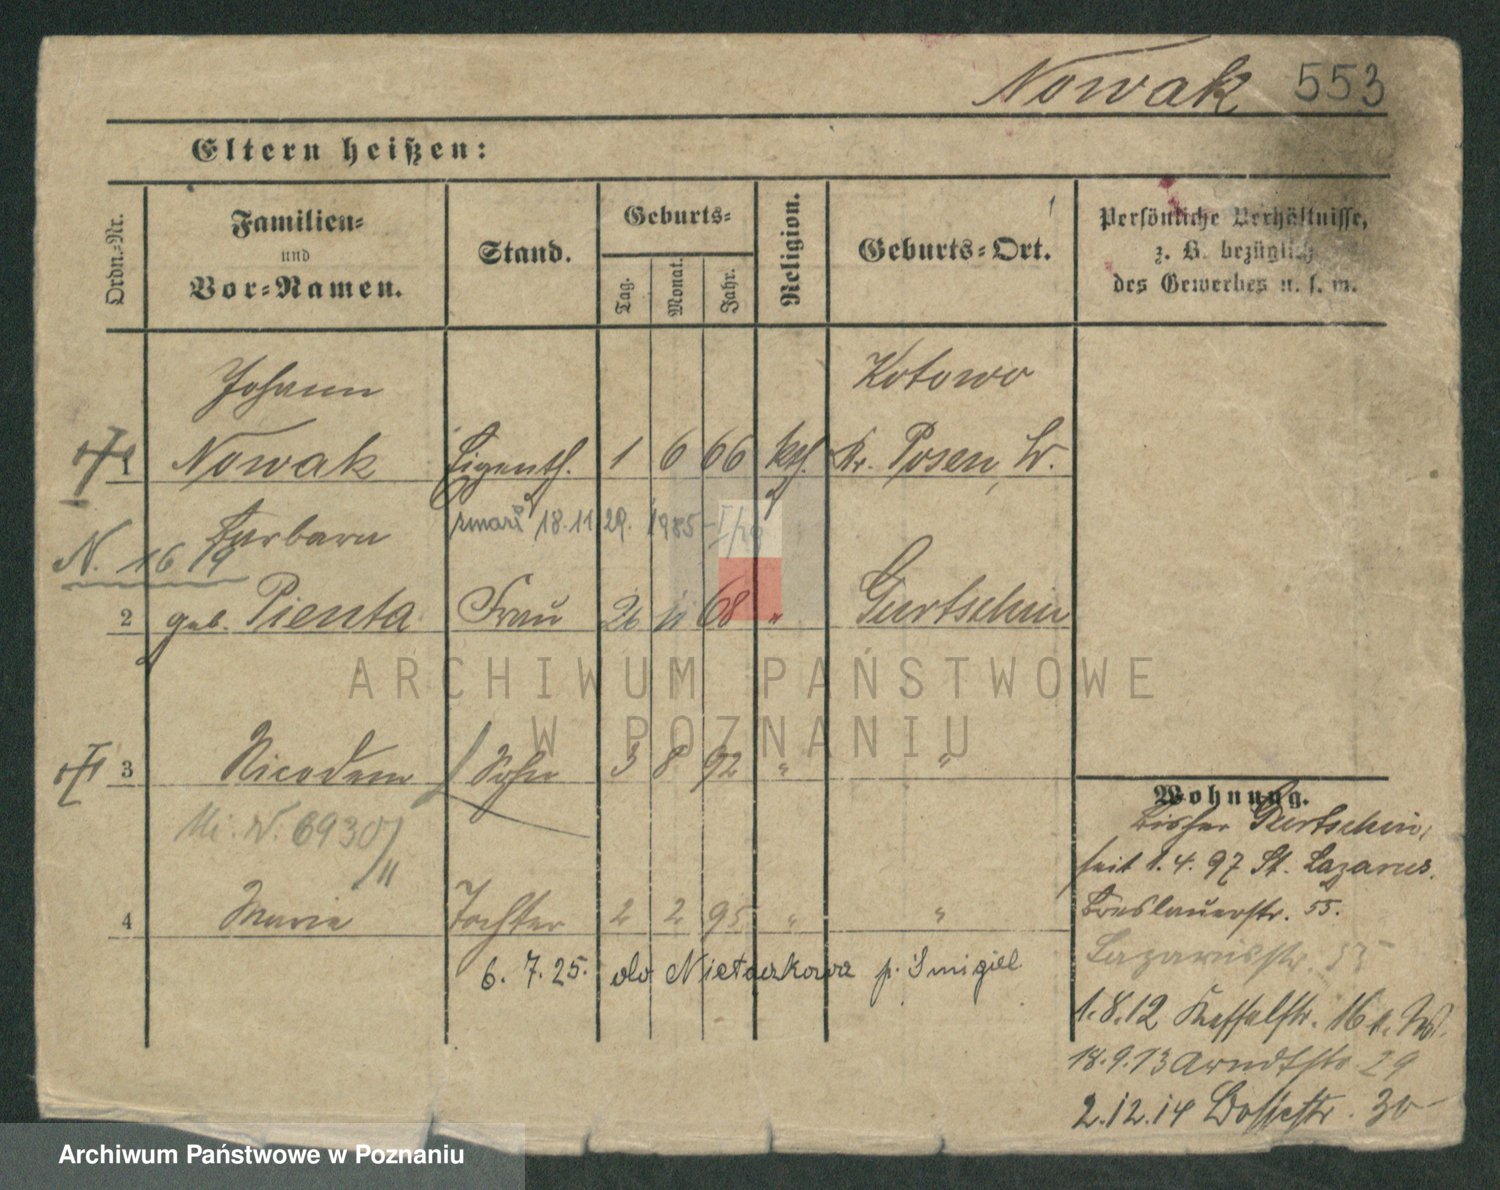 Nowak 553
Eltern heißen:
Ordn.-Nr.
Familien-
und
Vor-Namen.
Stand.
Geburts-
Tag.
Monat.
Jahr.
Religion.
Geburts-Ort.
Persönliche Verhältnisse,
z. B. bezüglich
des Gewerbes u. s. w.
Johann Kotowo
1 Nowak Eigenth. 1 6 66 kth. Kr. Posen, W.
Barbara zmarł 18.11.29. 1985-I/29
N. 1619
2 geb. Pienta Frau 26 11 68 " Gurtschin
3 Nicodem Sohn 3 8 92 " "
N. 6930
4 Marie Tochter 2 2 95 " "
6. 7. 25. do p. Śmigiel
Wohnung.
Bisher Gurtschin,
seit 1.4.97 St. Lazarus.
Breslauerstr. 55.
Lazarusstr. 55
1.8.12 Kesselstr. 16
18.9.13 Arndtstr. 29
2.12.14 30
ARCHIWUM PAŃSTWOWE
W POZNANIU
Archiwum Państwowe w Poznaniu